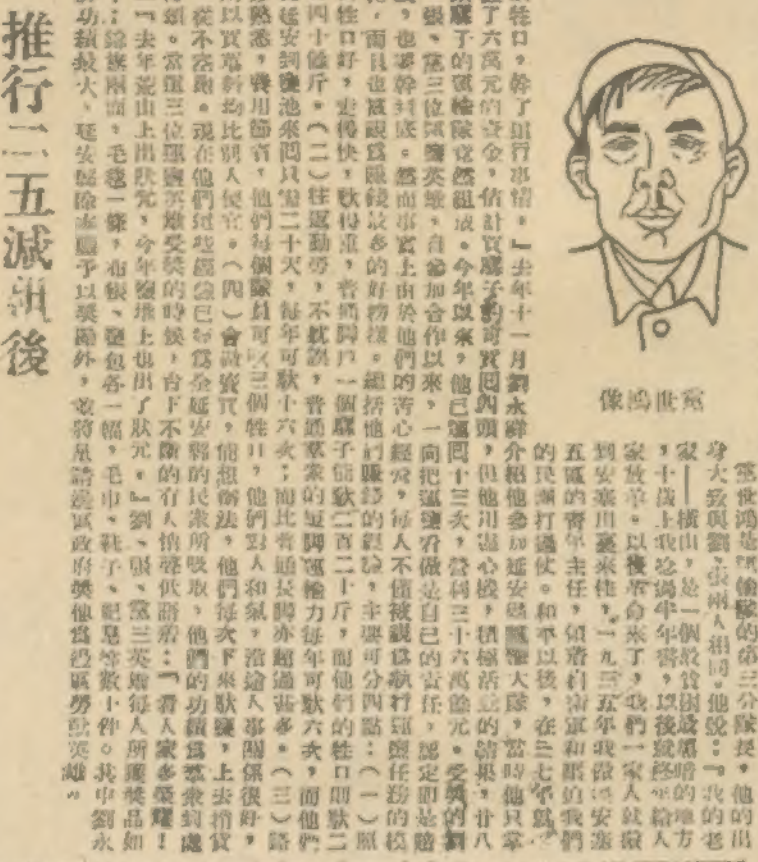 黨世鴻像
黨世鴻是運輸隊的第三分隊長,他的出
身大致與劉、張兩人相同。他說:『我的老
家——橫山,是一個最貧困最黑暗的地方
,十歲上我唸過半年書,以後就終年給人
家放羊。以後革命來了,我們一家人就搬
到安塞山裏來住,一九三五年我做過安塞
五區的青年主任,領着自衛軍和壓迫我們
的民團打過仗。和平以後,在三七年就
牲口,幹了這行事情。』去年十一月劉永祥介紹他參加延安縣鹽運大隊,當時他只拿
了六萬元的資金,估計買騾子的可買回四頭,但他用盡心機,積極活動的結果,廿八
騾子的運輸隊竟然組成。今年以來,他已運回十三次,營利三十六萬餘元。受獎的劉
張、黨三位運鹽英雄,自參加合作以來,一向把運鹽看做是自己的責任,認定即是賠
,也要幹到底。然而事實上由於他們的苦心經營,每人不僅被視為執行運鹽任務的模
,而且也被視為賺錢最多的好榜樣。總括他們賺錢的經驗,主要可分四點:(一)照
牲口好,走得快,馱得重,普通脚戶一個騾子能馱二百二十斤,而他們的牲口則馱二
四十餘斤。(二)往返勤勞,不躭誤,普通羣眾的短脚運輸力每年可馱六次,而他們
延安到鹽池來回只需二十天,每年可馱十六次;而比普通長脚亦超過甚多。(三)路
熟悉,費用節省,他們每個隊員可吆三個牲口,他們對人和氣,沿途人事關係很好,
所以買草料均比別人便宜。(四)會做買賣,能想辦法,他們每次下來馱鹽,上去捎貨
從不空跑。現在他們這些經驗已經為全延安縣的民眾所吸取,他們的功績為羣眾到處
頌。當這三位運鹽英雄受獎的時候,台下不斷的有人悄聲低語着:『看人家多榮耀!
『去年荒山上出狀元,今年鹽堆上也出了狀元。』劉、張、黨三英雄每人所獲獎品如
:錦旗兩面,毛毯一條,布帳、鹽包各一幅,毛巾、鞋子、肥皂等數十件。其中劉永
功績最大,延安縣除本縣予以獎勵外,並將呈請邊區政府獎他為邊區勞動英雄。
推行二五減租後